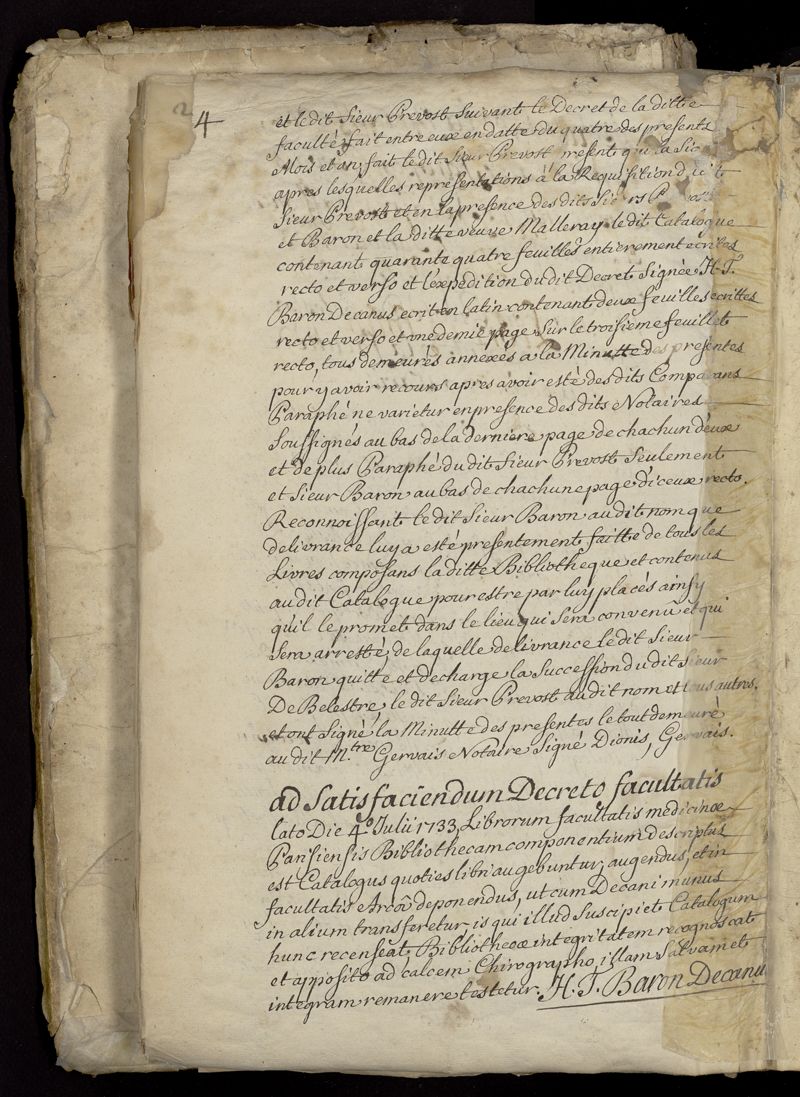 2
4
et le dit Sieur Prevost Suivant le Decret de la ditte
faculté fait entre eux en datte du quatre des presents
Mois et an, fait le dit Sieur Prevost
apres lesquelles representations à la Requisition
Sieur Prevost et en la presence des dits
et Baron et la ditte veuve Malleray le dit Catalogue
contenant quarante quatre feuilles entierement ecrites
recto et verso et l'expedition du dit Decret Signée H. T.
Baron Decanus ecrit en latin contenant deux feuilles ecrittes
recto et verso et une demie page Sur le troisieme feuillet
recto, tous demeurés annexés a la Minutte des presentes
pour y avoir recours apres avoir esté des dits Comparans
Paraphé ne varietur en presence des dits Notaires
Soussignés au bas de la derniere page de chachun deux
et de plus Paraphé du dit Sieur Prevost Seulement
et Sieur Baron au bas de chachune page d'iceux recto.
Reconnoissant le dit Sieur Baron au dit nom que
delivrance luy a esté presentement faitte de tous les
Livres composans la ditte Bibliotheque et contenus
au dit Catalogue pour estre par luy placés ainsy
qu'il le promet dans le lieu qui Sera convenû et qui
Sera arresté, de laquelle delivrance le dit Sieur
Baron quitte et decharge la Succession du dit Sieur
De Belestre, le dit Sieur Prevost au dit nom et tous autres.
et ont Signé la Minutte des presentes le tout demeuré
au dit M.tre Gervais Notaire Signé Dionis, Gervais.
ad Satisfaciendum Decreto facultatis
lato Die 4.o Julii 1733, Librorum facultatis medicinæ
Parisiensis Bibliothecam componentium descriptus
est Catalogus quoties libri augebuntur, augendus, et in
facultatis Arcâ deponendus, ut cum Decani munus
in alium transferetur is qui illud Suscipiet Catalogum
hunc recenseat, Bibliothecæ integritatem recognoscat
et apposito ad calcem Chirographo, illam Salvam et
integram remanere testetur. H. T. Baron Decanus